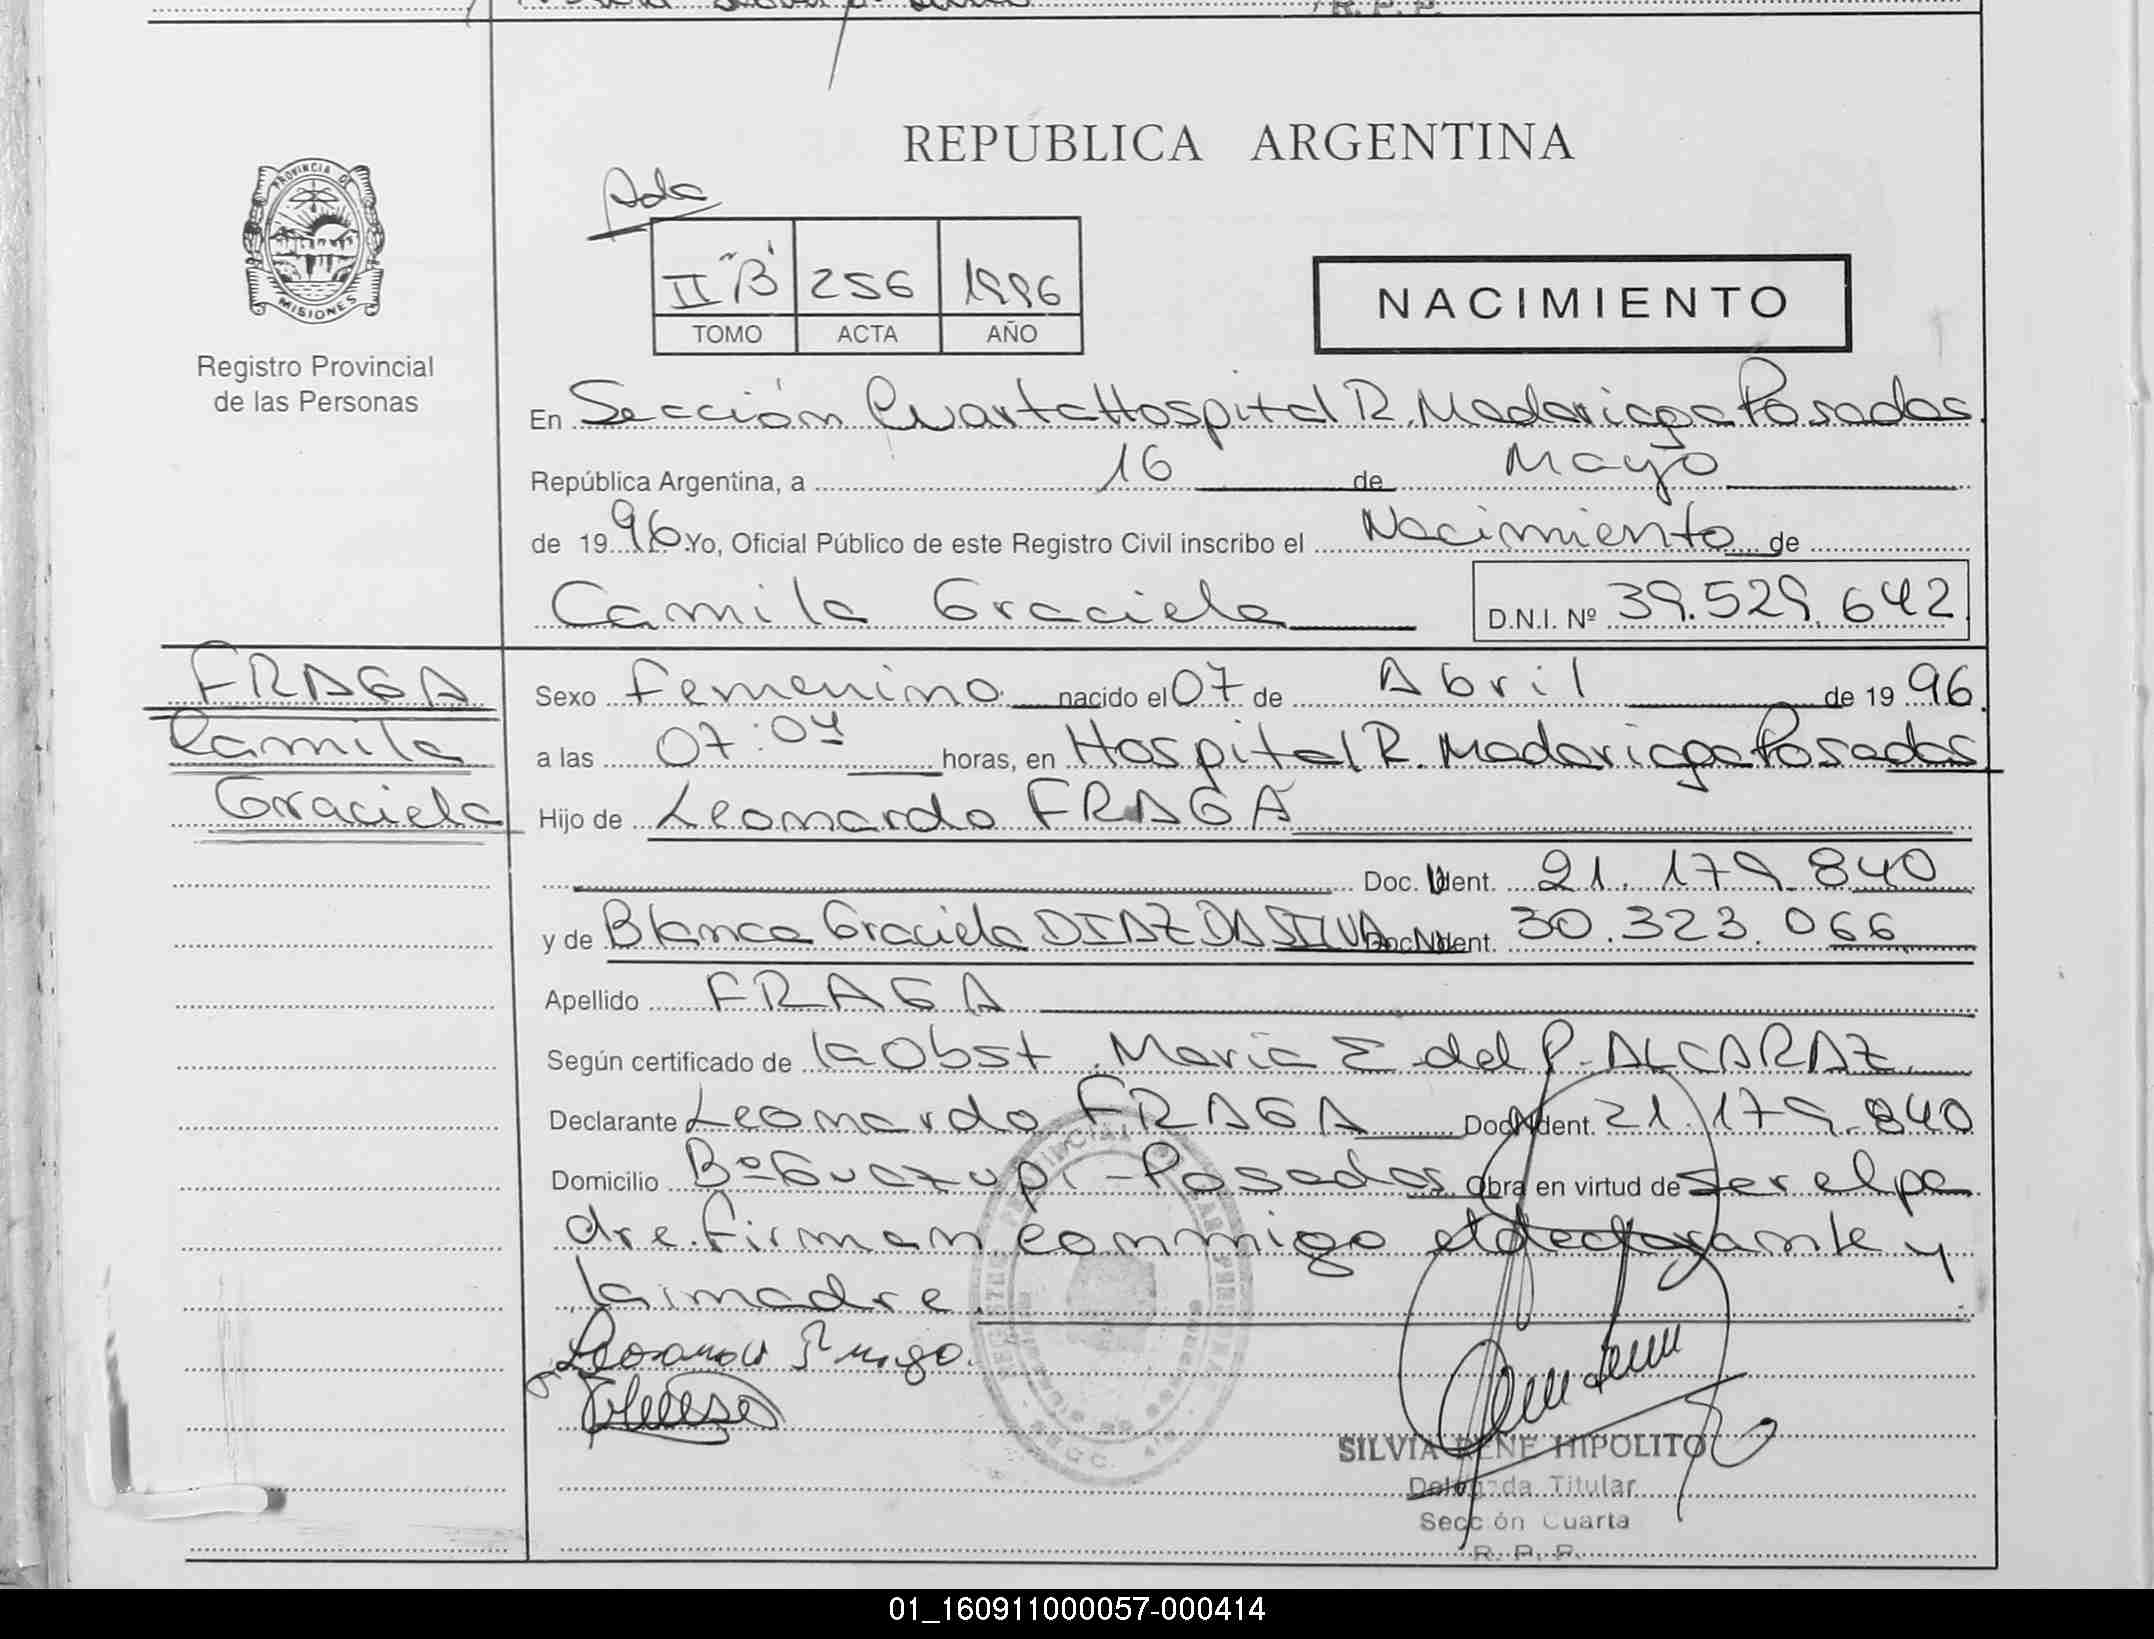 R. P. P.
REPUBLICA ARGENTINA
PROVINCIA DE
MISIONES
Registro Provincial
de las Personas
II "B" 256 1996
TOMO ACTA AÑO
NACIMIENTO
En Sección Cuarta Hospital R. Madariaga Posadas.
República Argentina, a 16 de Mayo
de 1996. Yo, Oficial Público de este Registro Civil inscribo el Nacimiento de
Camila Graciela D.N.I. Nº 39.529.642
FRAGA
Camila
Graciela
Sexo femenino nacido el 07 de Abril de 1996.
a las 07:04 horas, en Hospital R. Madariaga Posadas
Hijo de Leonardo FRAGA
Doc. Ident. 21.179.840
y de Blanca Graciela DIAZ DA SILVA Doc. Ident. 30.323.066
Apellido FRAGA
Según certificado de la Obst. María E. del P. ALCARAZ.
Declarante Leonardo FRAGA Doc. Ident. 21.179.840
Domicilio Bº Guazupi - Posadas. Obra en virtud de ser el pa
dre. firman conmigo el declarante y
la madre.
SILVIA RENE HIPOLITO
Delegada Titular
Sección Cuarta
R. P. P.
01_160911000057-000414